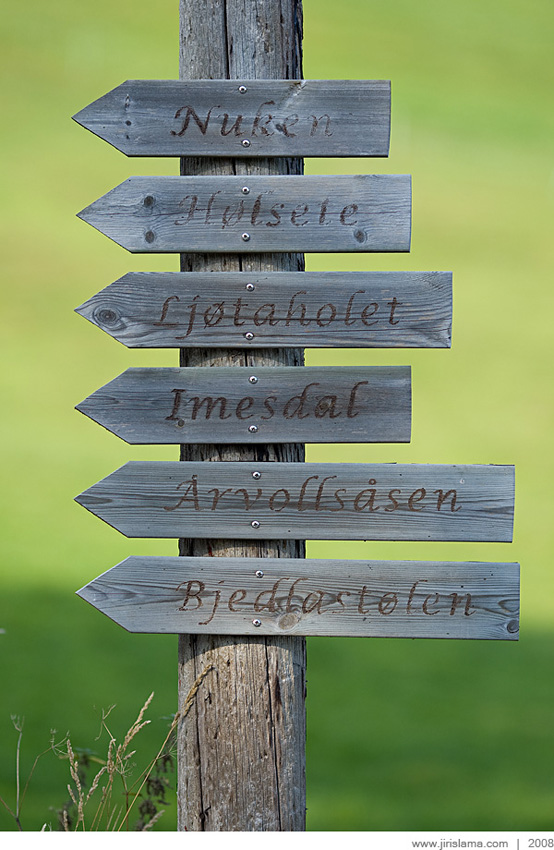 Nuken
Hølsete
Ljøtaholet
Imesdal
Årvollsåsen
Bjedlastølen
www.jirislama.com | 2008